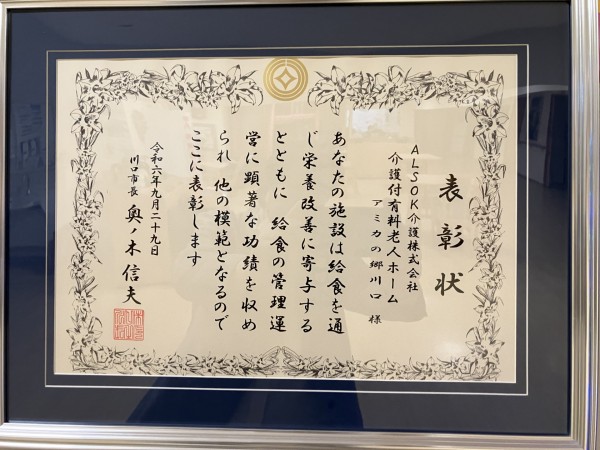 表彰状
ALSOK介護株式会社
介護付有料老人ホーム
アミカの郷川口 様
あなたの施設は給食を通
じ栄養改善に寄与する
とともに 給食の管理運
営に顕著な功績を収め
られ 他の模範となるので
ここに表彰します
令和六年九月二十九日
川口市長 奥ノ木信夫